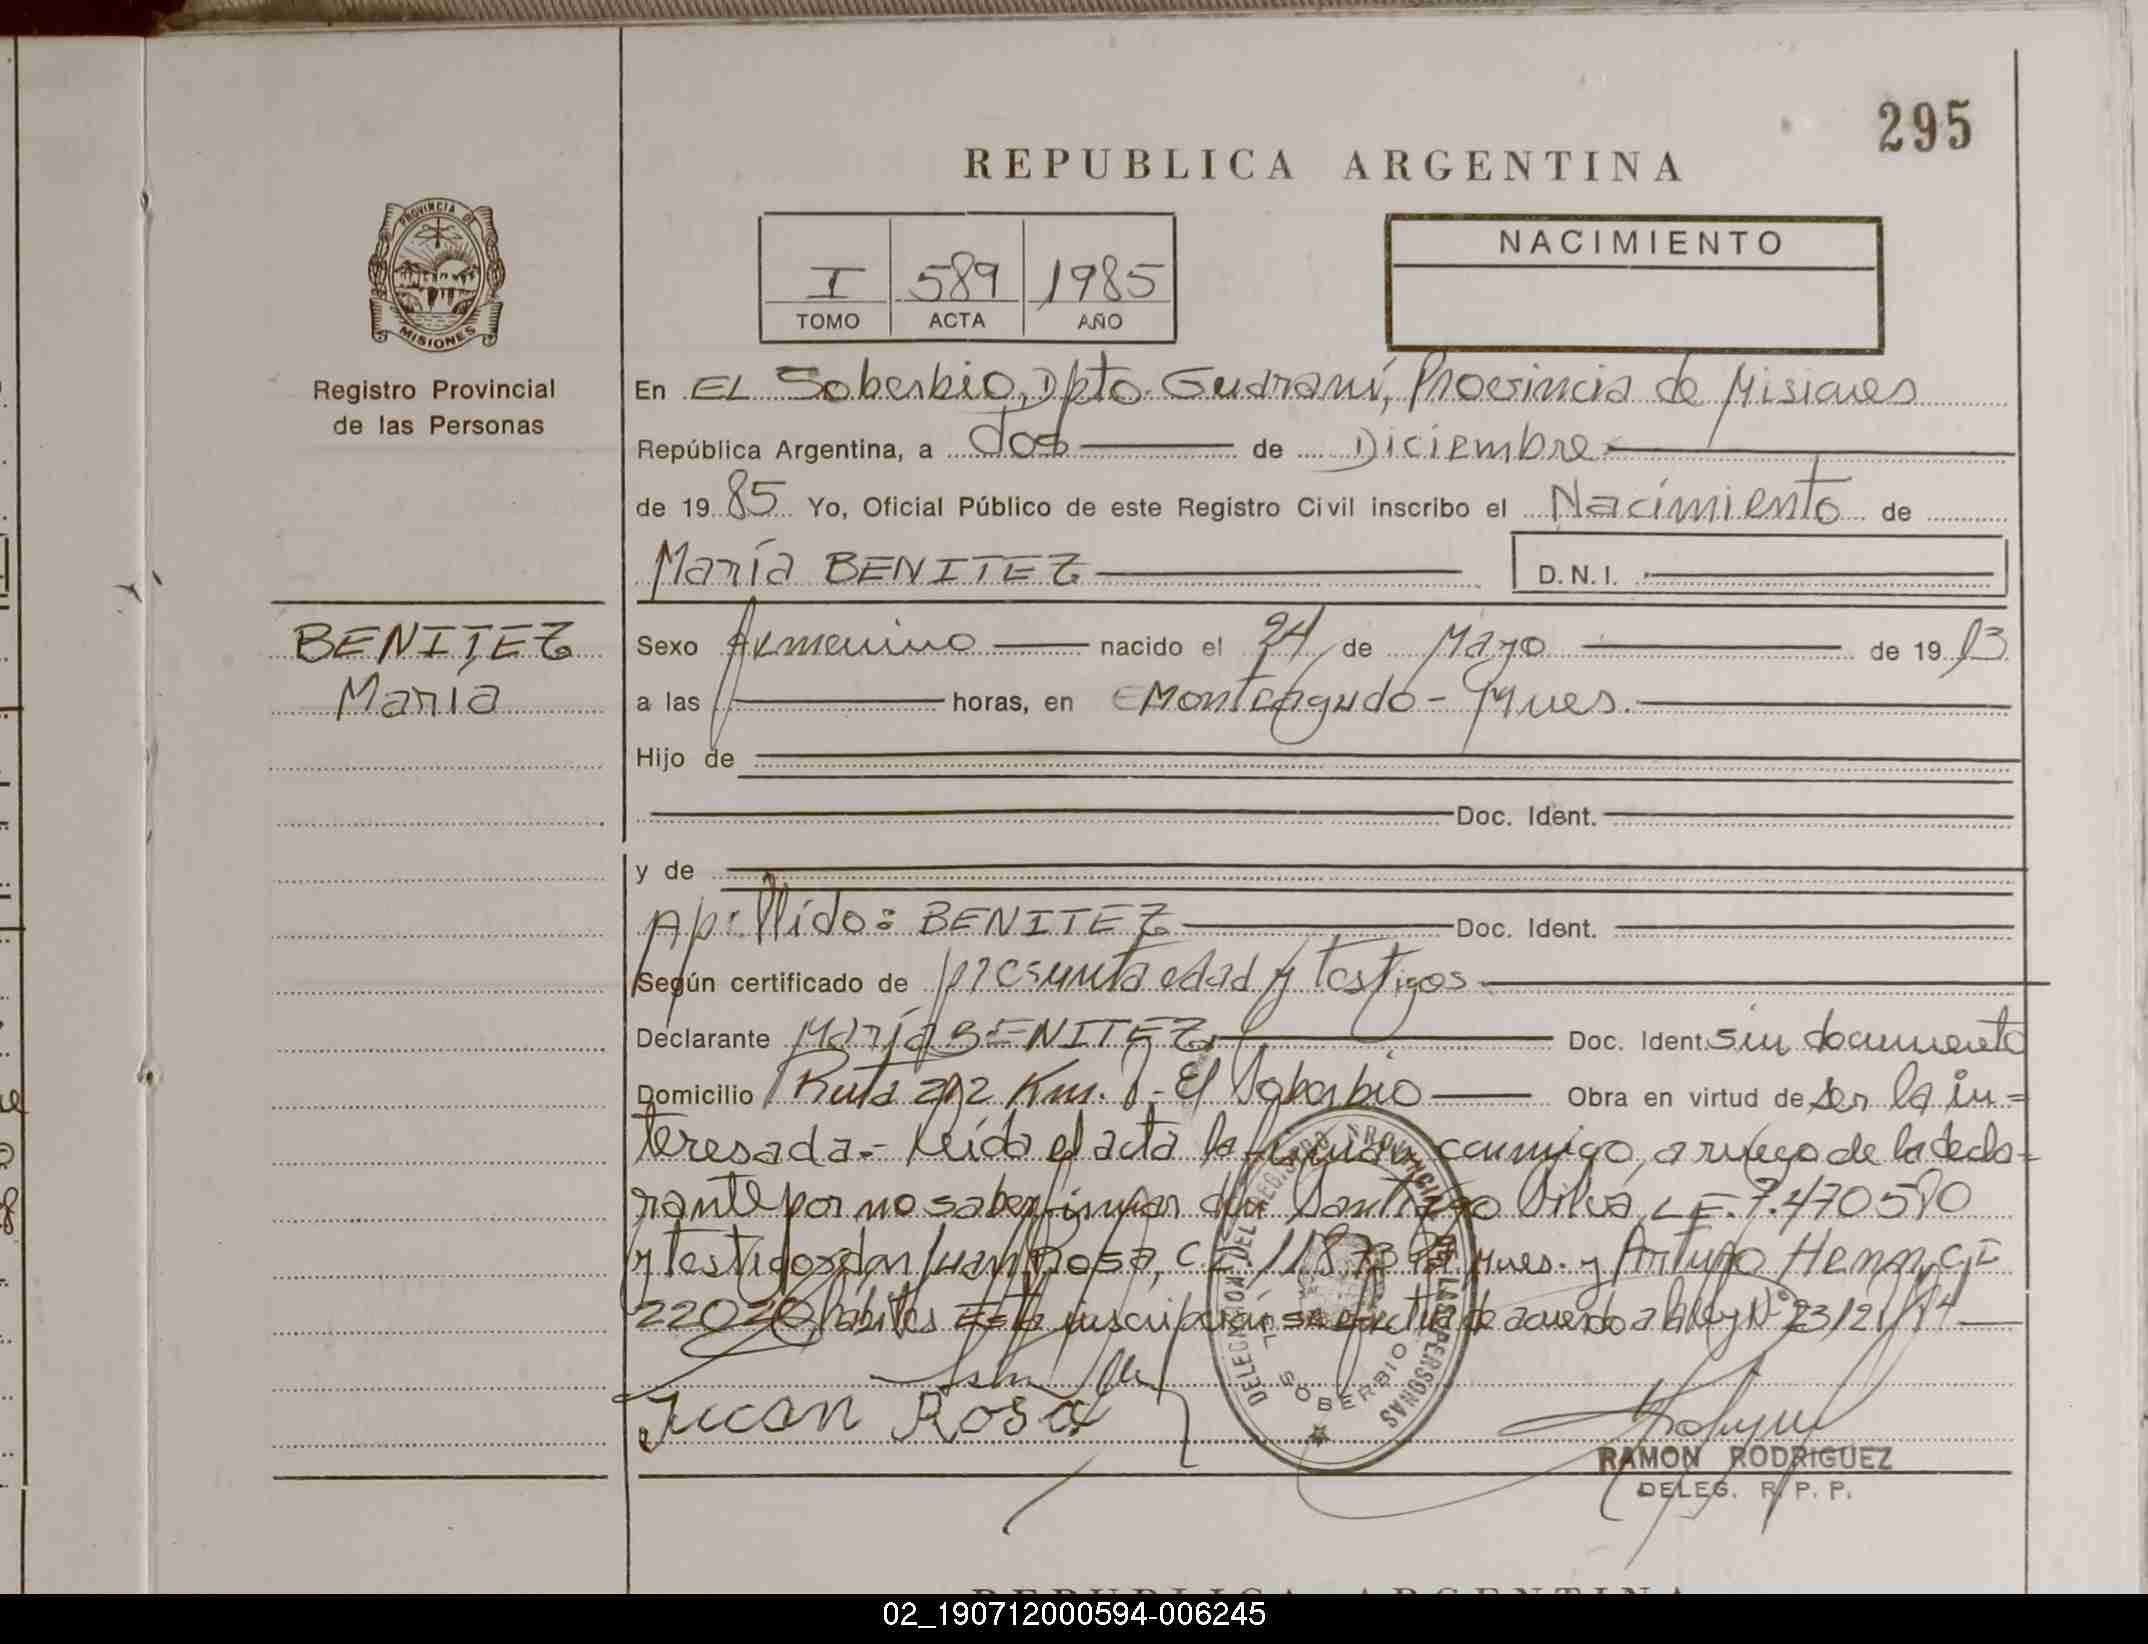 295
REPUBLICA ARGENTINA
PROVINCIA DE
MISIONES
Registro Provincial
de las Personas
I 589 1985
TOMO ACTA AÑO
NACIMIENTO
En EL Soberbio, Dpto. Guaraní, Provincia de Misiones
República Argentina, a dos de Diciembre
de 1985 Yo, Oficial Público de este Registro Civil inscribo el Nacimiento de
María BENITEZ D.N.I.
BENITEZ
María
Sexo femenino nacido el 24 de Mayo de 1913
a las horas, en Monteagudo - Mnes.
Hijo de
Doc. Ident.
y de
Apellido: BENITEZ Doc. Ident.
Según certificado de presunta edad y testigos
Declarante María BENITEZ Doc. Ident. sin documento
Domicilio Ruta 212 Km. - El Soberbio Obra en virtud de ser la in=
teresada.- Leída el acta la firman conmigo, a ruego de la decla=
rante por no saber firmar don Santiago Silva, L.E. 7.470580
y testigos don Juan Rosa, C.I. Mnes. y Arturo C.I
22020 hábiles Esta inscripción se efectúa de acuerdo a la ley N°
Juan Rosa
DELEGACION DEL REGISTRO PROVINCIAL DE LAS PERSONAS
EL SOBERBIO
RAMON RODRIGUEZ
DELEG. R. P. P.
REPUBLICA ARGENTINA
02_190712000594-006245